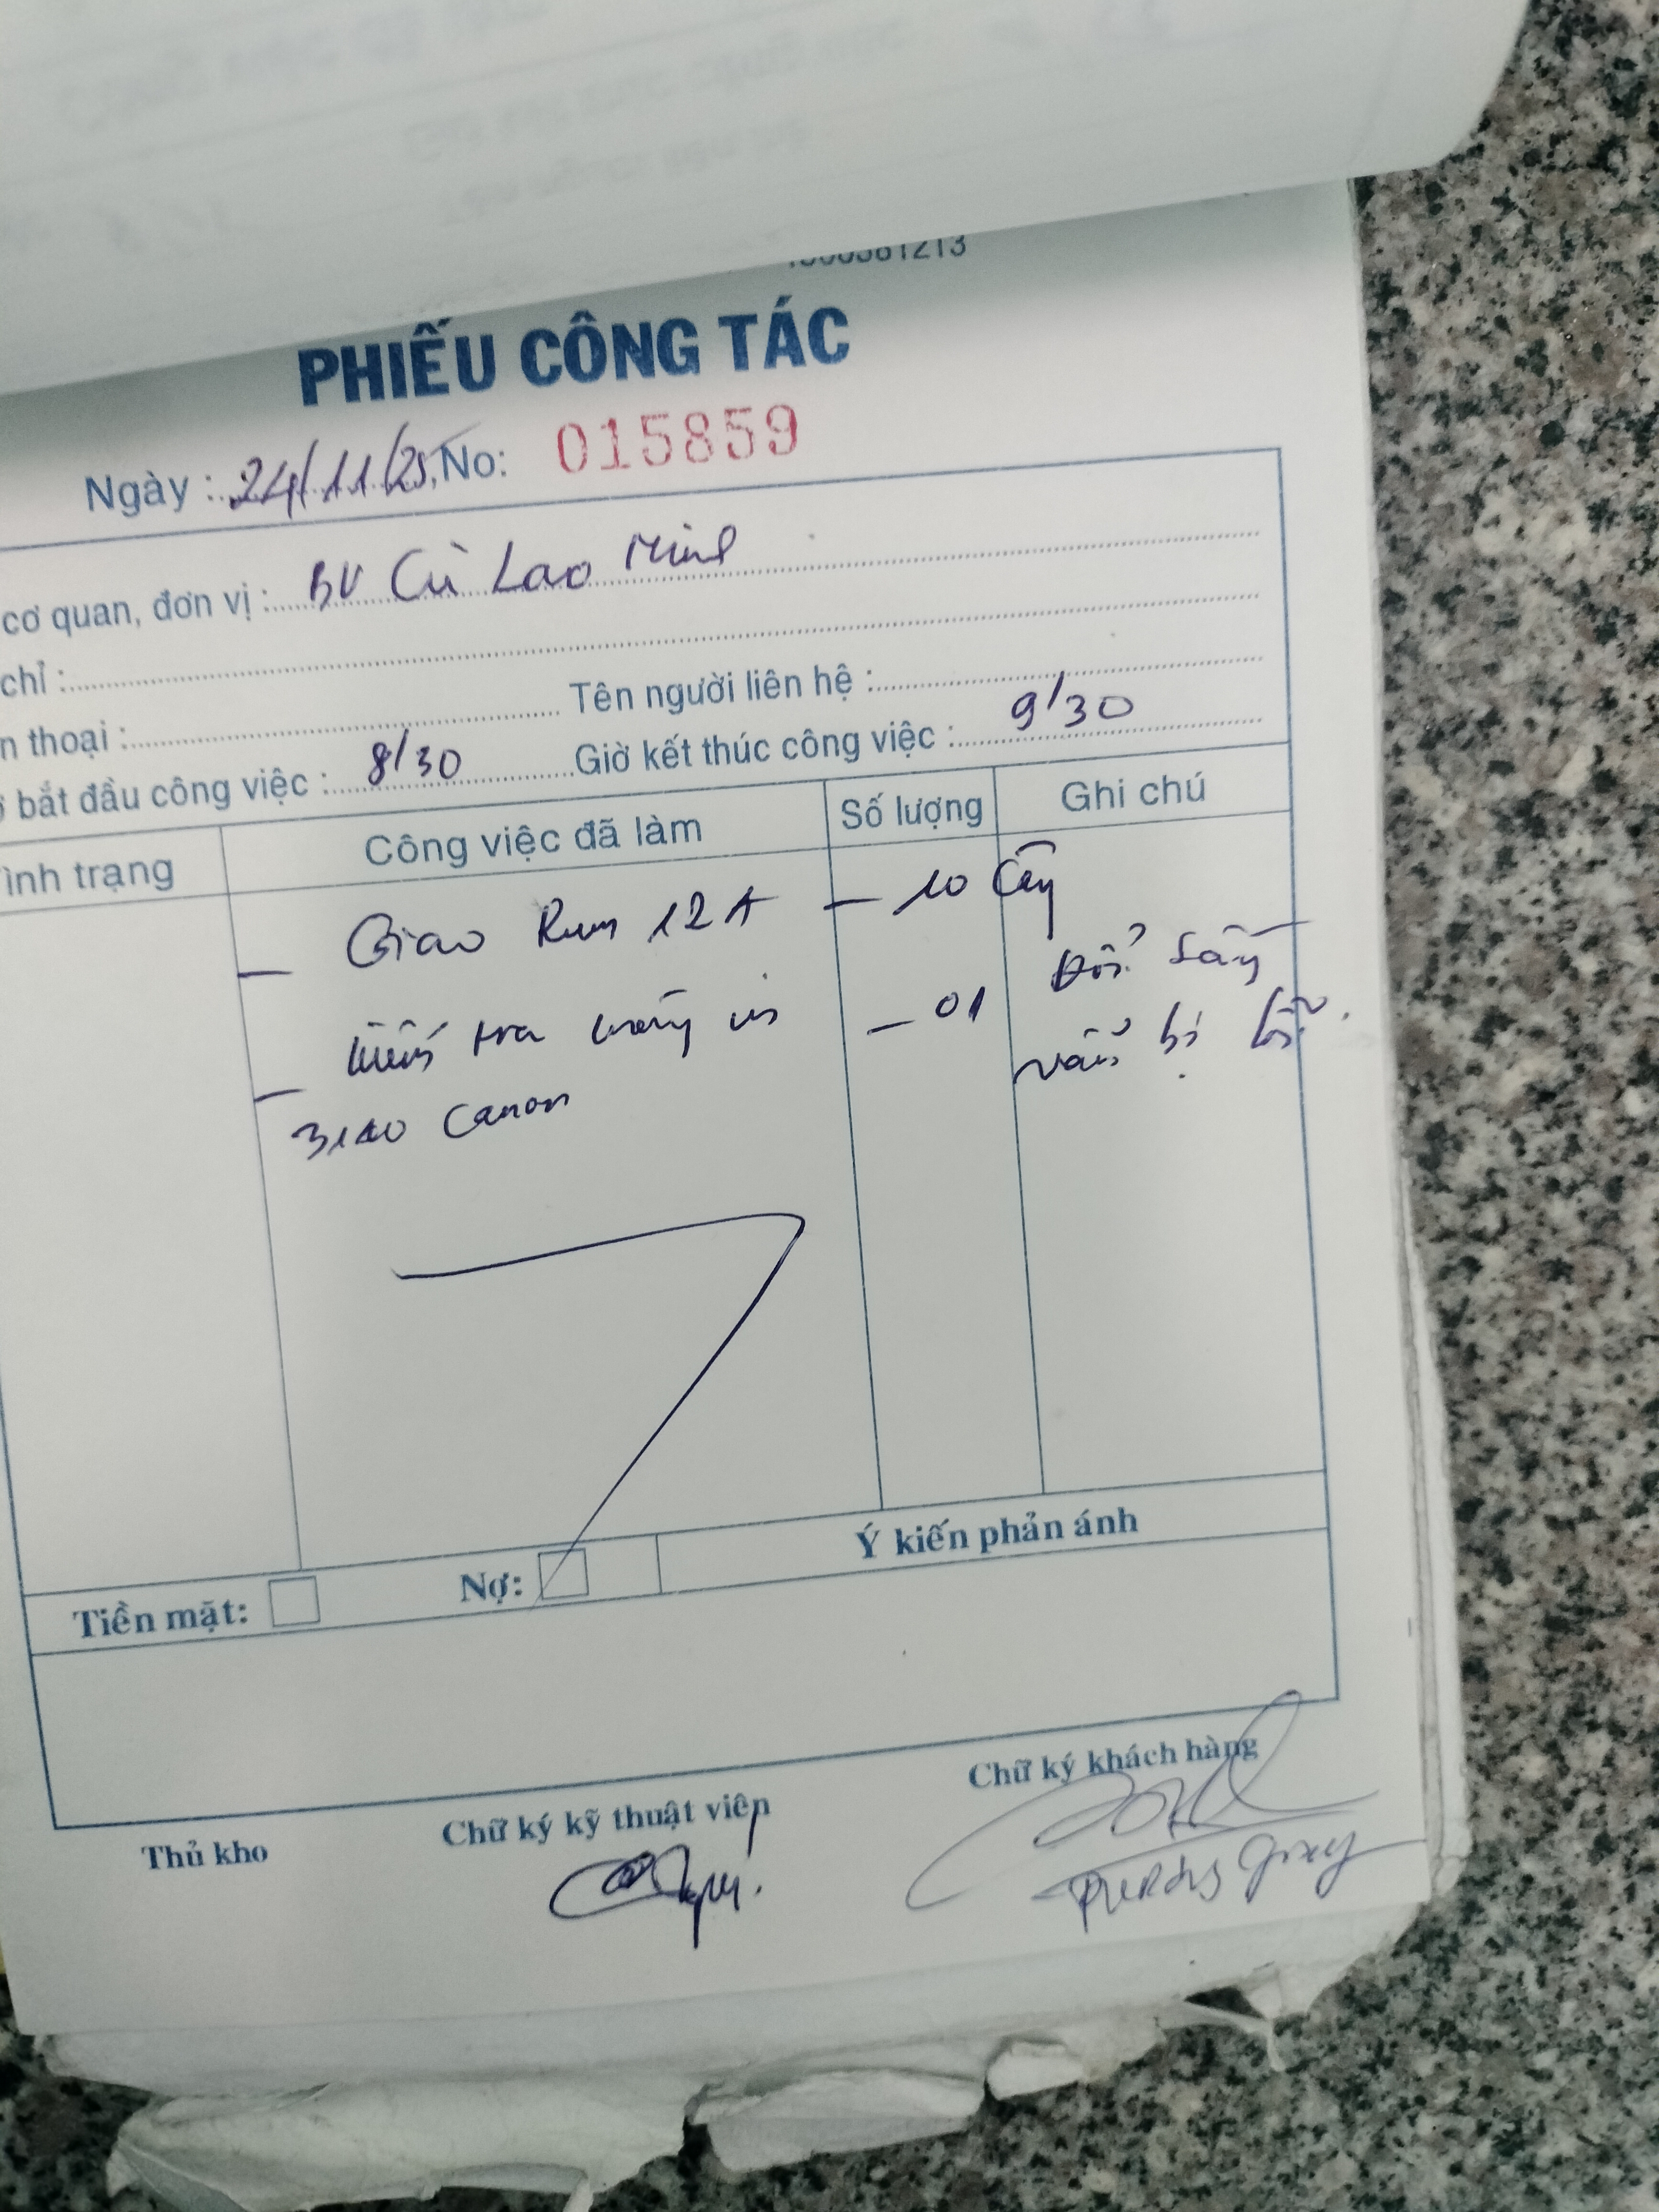 1213
PHIẾU CÔNG TÁC
Ngày : 24/11/25 No: 015859
cơ quan, đơn vị : BV Cù Lao Minh
chỉ :
n thoại : Tên người liên hệ :
bắt đầu công việc : 8/30 Giờ kết thúc công việc : 9/30
ình trạng Công việc đã làm Số lượng Ghi chú
- Giao Rum 12A - 10 Cây
- kiểm tra máy in - 01 Đổi sẵn
Canon vẫn bị lỗi.
Tiền mặt: Nợ: Ý kiến phản ánh
Thủ kho Chữ ký kỹ thuật viên Chữ ký khách hàng